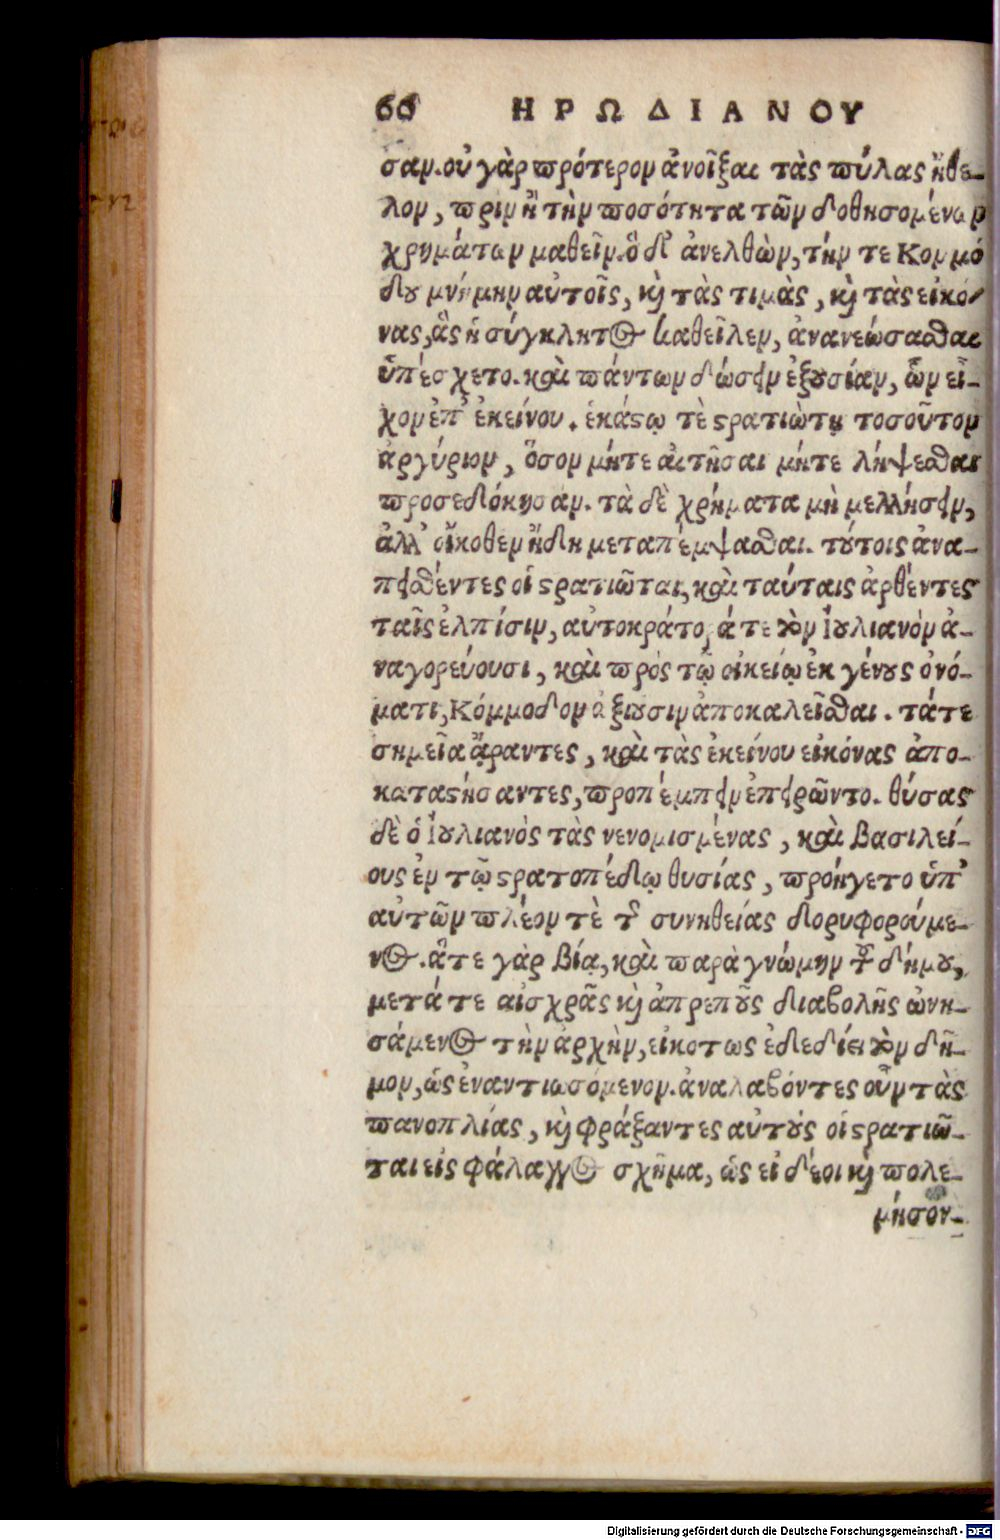 66 ΗΡΩΔΙΑΝΟΥ
σαν. οὐ γὰρ πρότερον ἀνοῖξαι τὰς πύλας ἤθε-
λον, πρὶν ἢ τὴν ποσότητα τῶν δοθησομένων
χρημάτων μαθεῖν. ὁ δ' ἀνελθὼν, τήν τε Κομμό
δου μνήμην αὐτοῖς, καὶ τὰς τιμὰς, καὶ τὰς εἰκό-
νας, ἃς ἡ σύγκλητος καθεῖλεν, ἀνανεώσασθαι
ὑπέσχετο. καὶ πάντων δώσειν ἐξουσίαν, ὧν εἶ-
χον ἐπ' ἐκείνου. ἑκάστῳ τὲ στρατιώτῃ τοσοῦτον
ἀργύριον, ὅσον μήτε αἰτῆσαι μήτε λήψεσθαι
προσεδόκησαν. τὰ δὲ χρήματα μὴ μελλήσειν,
ἀλλ' οἴκοθεν ἤδη μεταπέμψασθαι. τούτοις ἀνα-
πεισθέντες οἱ στρατιῶται, καὶ ταύταις ἀρθέντες
ταῖς ἐλπίσιν, αὐτοκράτορά τε τὸν Ἰουλιανὸν ἀ-
ναγορεύουσι, καὶ πρὸς τῷ οἰκείῳ ἐκ γένους ὀνό-
ματι, Κόμμοδον ἀξιοῦσιν ἀποκαλεῖσθαι. τά τε
σημεῖα ἄραντες, καὶ τὰς ἐκείνου εἰκόνας ἀπο-
καταστήσαντες, προπέμπειν ἐπειρῶντο. θύσας
δὲ ὁ Ἰουλιανὸς τὰς νενομισμένας, καὶ βασιλεί-
ους ἐν τῷ στρατοπέδῳ θυσίας, προήγετο ὑπ'
αὐτῶν πλέον τὲ τῆς συνηθείας δορυφορούμε-
νος. ἅτε γὰρ βίᾳ, καὶ παρὰ γνώμην τοῦ δήμου,
μετά τε αἰσχρᾶς καὶ ἀπρεποῦς διαβολῆς ὠνη-
σάμενος τὴν ἀρχὴν, εἰκότως ἐδεδίει τὸν δῆ-
μον, ὡς ἐναντιωσόμενον. ἀναλαβόντες οὖν τὰς
πανοπλίας, καὶ φράξαντες αὑτοὺς οἱ στρατιῶ-
ται εἰς φάλαγγος σχῆμα, ὡς εἰ δέοι καὶ πολε-
μήσον-
Digitalisierung gefördert durch die Deutsche Forschungsgemeinschaft - DFG